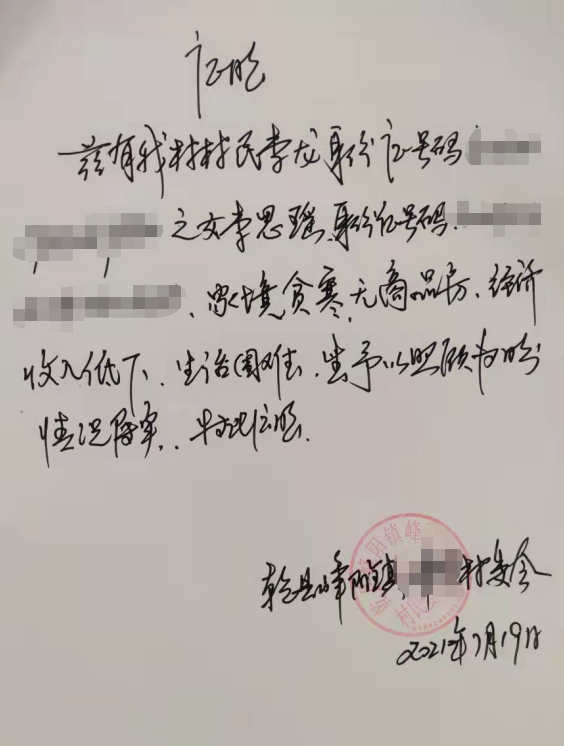 证明
兹有我村村民李龙身份证号码
之女李思瑶、身份证号码
、家境贫寒、无商品房、经济
收入低下、生活困难、望予以照顾为盼
情况属实，特此证明
乾县峰阳镇 村委会
2021年7月19日
阳镇峰
村民